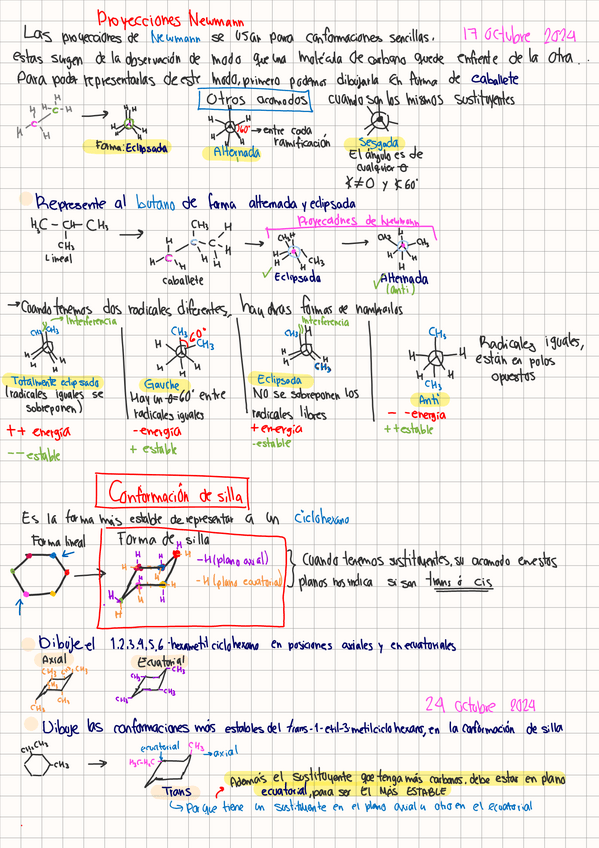 Proyecciones Newmann
Las proyecciones de Newmann se usan para conformaciones sencillas. 17 octubre 2024
estas surgen de la observación de modo que una molécula de carbono quede enfrente de la otra.
Para poder representarlas de este modo, primero podemos dibujarla en forma de caballete
Otros acomodos cuando son los mismos sustituyentes
Forma: Eclipsada
60° → entre cada ramificación
Alternada
Sesgada
El ángulo es de
cualquier θ
∡≠0 y ∡60°
Represente al butano de forma alternada y eclipsada
H₃C - CH - CH₃
CH₃
Lineal
caballete
Proyecciones de Newmann
✓ Eclipsada
✓ Alternada
(anti)
→ Cuando tenemos dos radicales diferentes, hay otras formas de nombrarlos
→ Interferencia
CH₃ CH₃
Totalmente eclipsada
(radicales iguales se
sobreponen)
++ energía
-- estable
CH₃ 60° CH₃
Gauche
Hay un θ=60° entre
radicales iguales
- energía
+ estable
Interferencia
CH₃ H
CH₃
Eclipsada
No se sobreponen los
radicales libres
+ energía
-estable
CH₃
CH₃
Anti
- - energía
++estable
Radicales iguales,
están en polos
opuestos
Conformación de silla
Es la forma más estable de representar a un ciclohexano
Forma lineal
Forma de silla
-H (plano axial)
-H (plano ecuatorial)
Cuando tenemos sustituyentes, su acomodo en estos
planos nos indica si son trans ó cis
Dibuje el 1,2,3,4,5,6-hexametil ciclohexano en posiciones axiales y en ecuatoriales
Axial
Ecuatorial
24 octubre 2024
Dibuje las conformaciones más estables del trans-1-etil-3-metilciclohexano, en la conformación de silla
CH₂CH₃
CH₃
ecuatorial CH₃ → axial
H₃CH₂C
Trans
Además el sustituyente que tenga más carbonos, debe estar en plano
ecuatorial, para ser el MÁS ESTABLE
↳ Porque tiene un sustituyente en el plano axial y otro en el ecuatorial